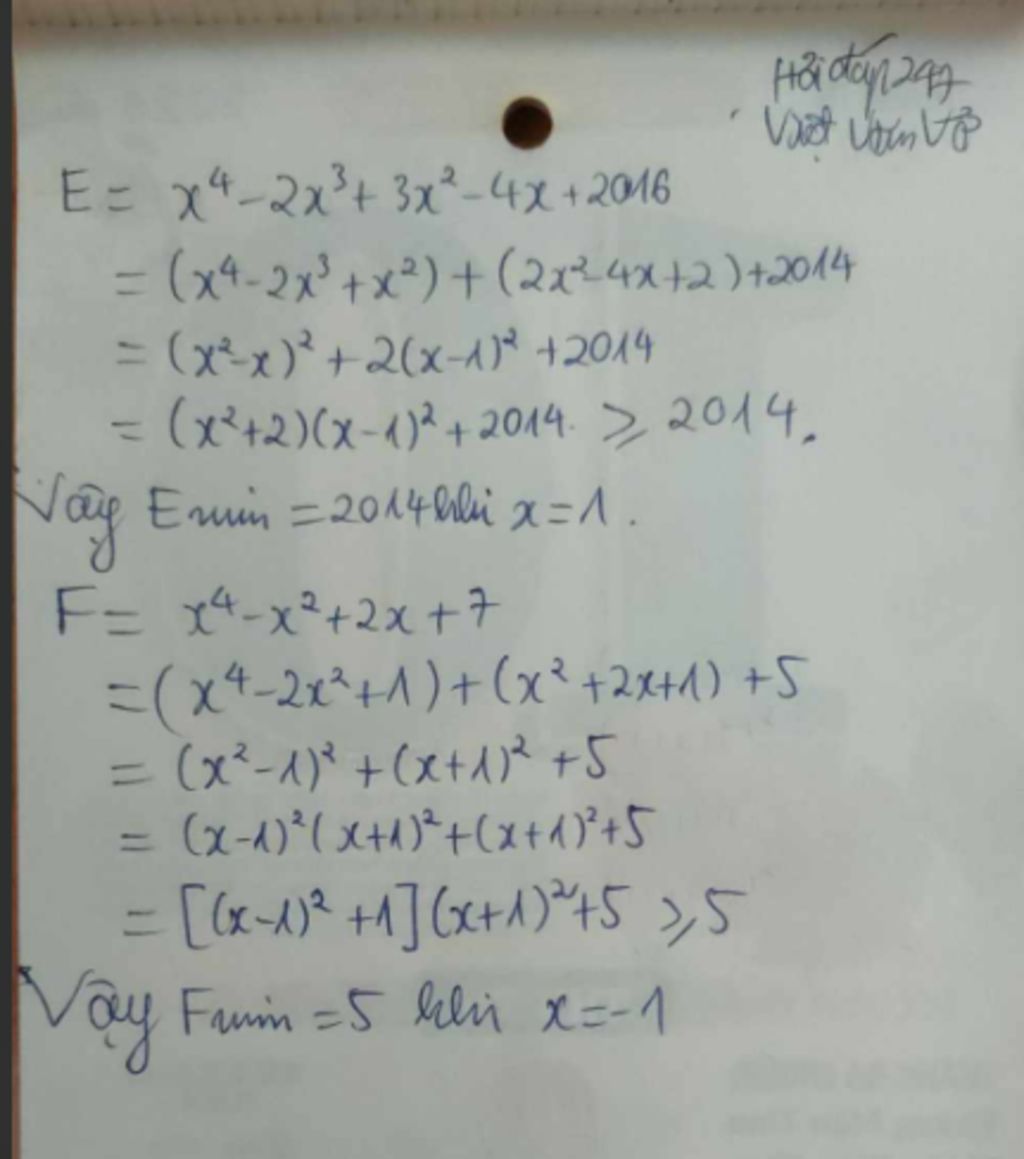 Hỏi đáp 247
Vượt Vũ
E = x⁴ - 2x³ + 3x² - 4x + 2016
= (x⁴ - 2x³ + x²) + (2x² - 4x + 2) + 2014
= (x² - x)² + 2(x - 1)² + 2014
= (x² + 2)(x - 1)² + 2014 ⩾ 2014.
Vậy E min = 2014 khi x = 1.
F = x⁴ - x² + 2x + 7
= (x⁴ - 2x² + 1) + (x² + 2x + 1) + 5
= (x² - 1)² + (x + 1)² + 5
= (x - 1)²(x + 1)² + (x + 1)² + 5
= [(x - 1)² + 1](x + 1)² + 5 ⩾ 5
Vậy F min = 5 khi x = -1